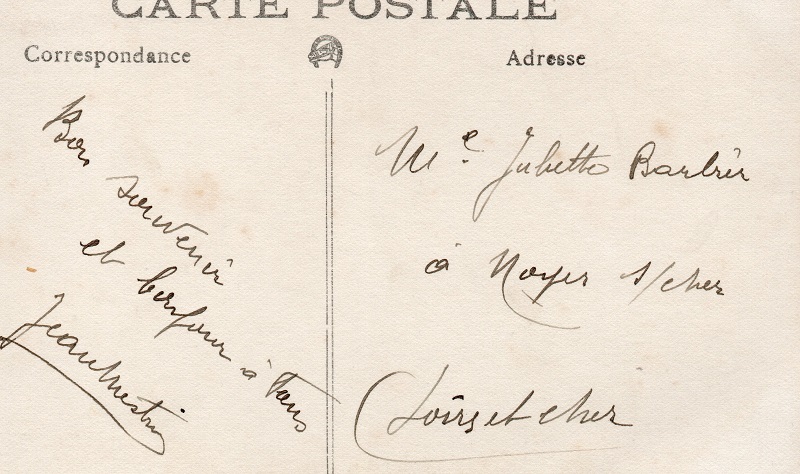 CARTE POSTALE
Correspondance
Adresse
Bon
souvenir
et bonjour à tous
Jean
Me Juliette Barbier
à Noyer s/cher
Loir et cher